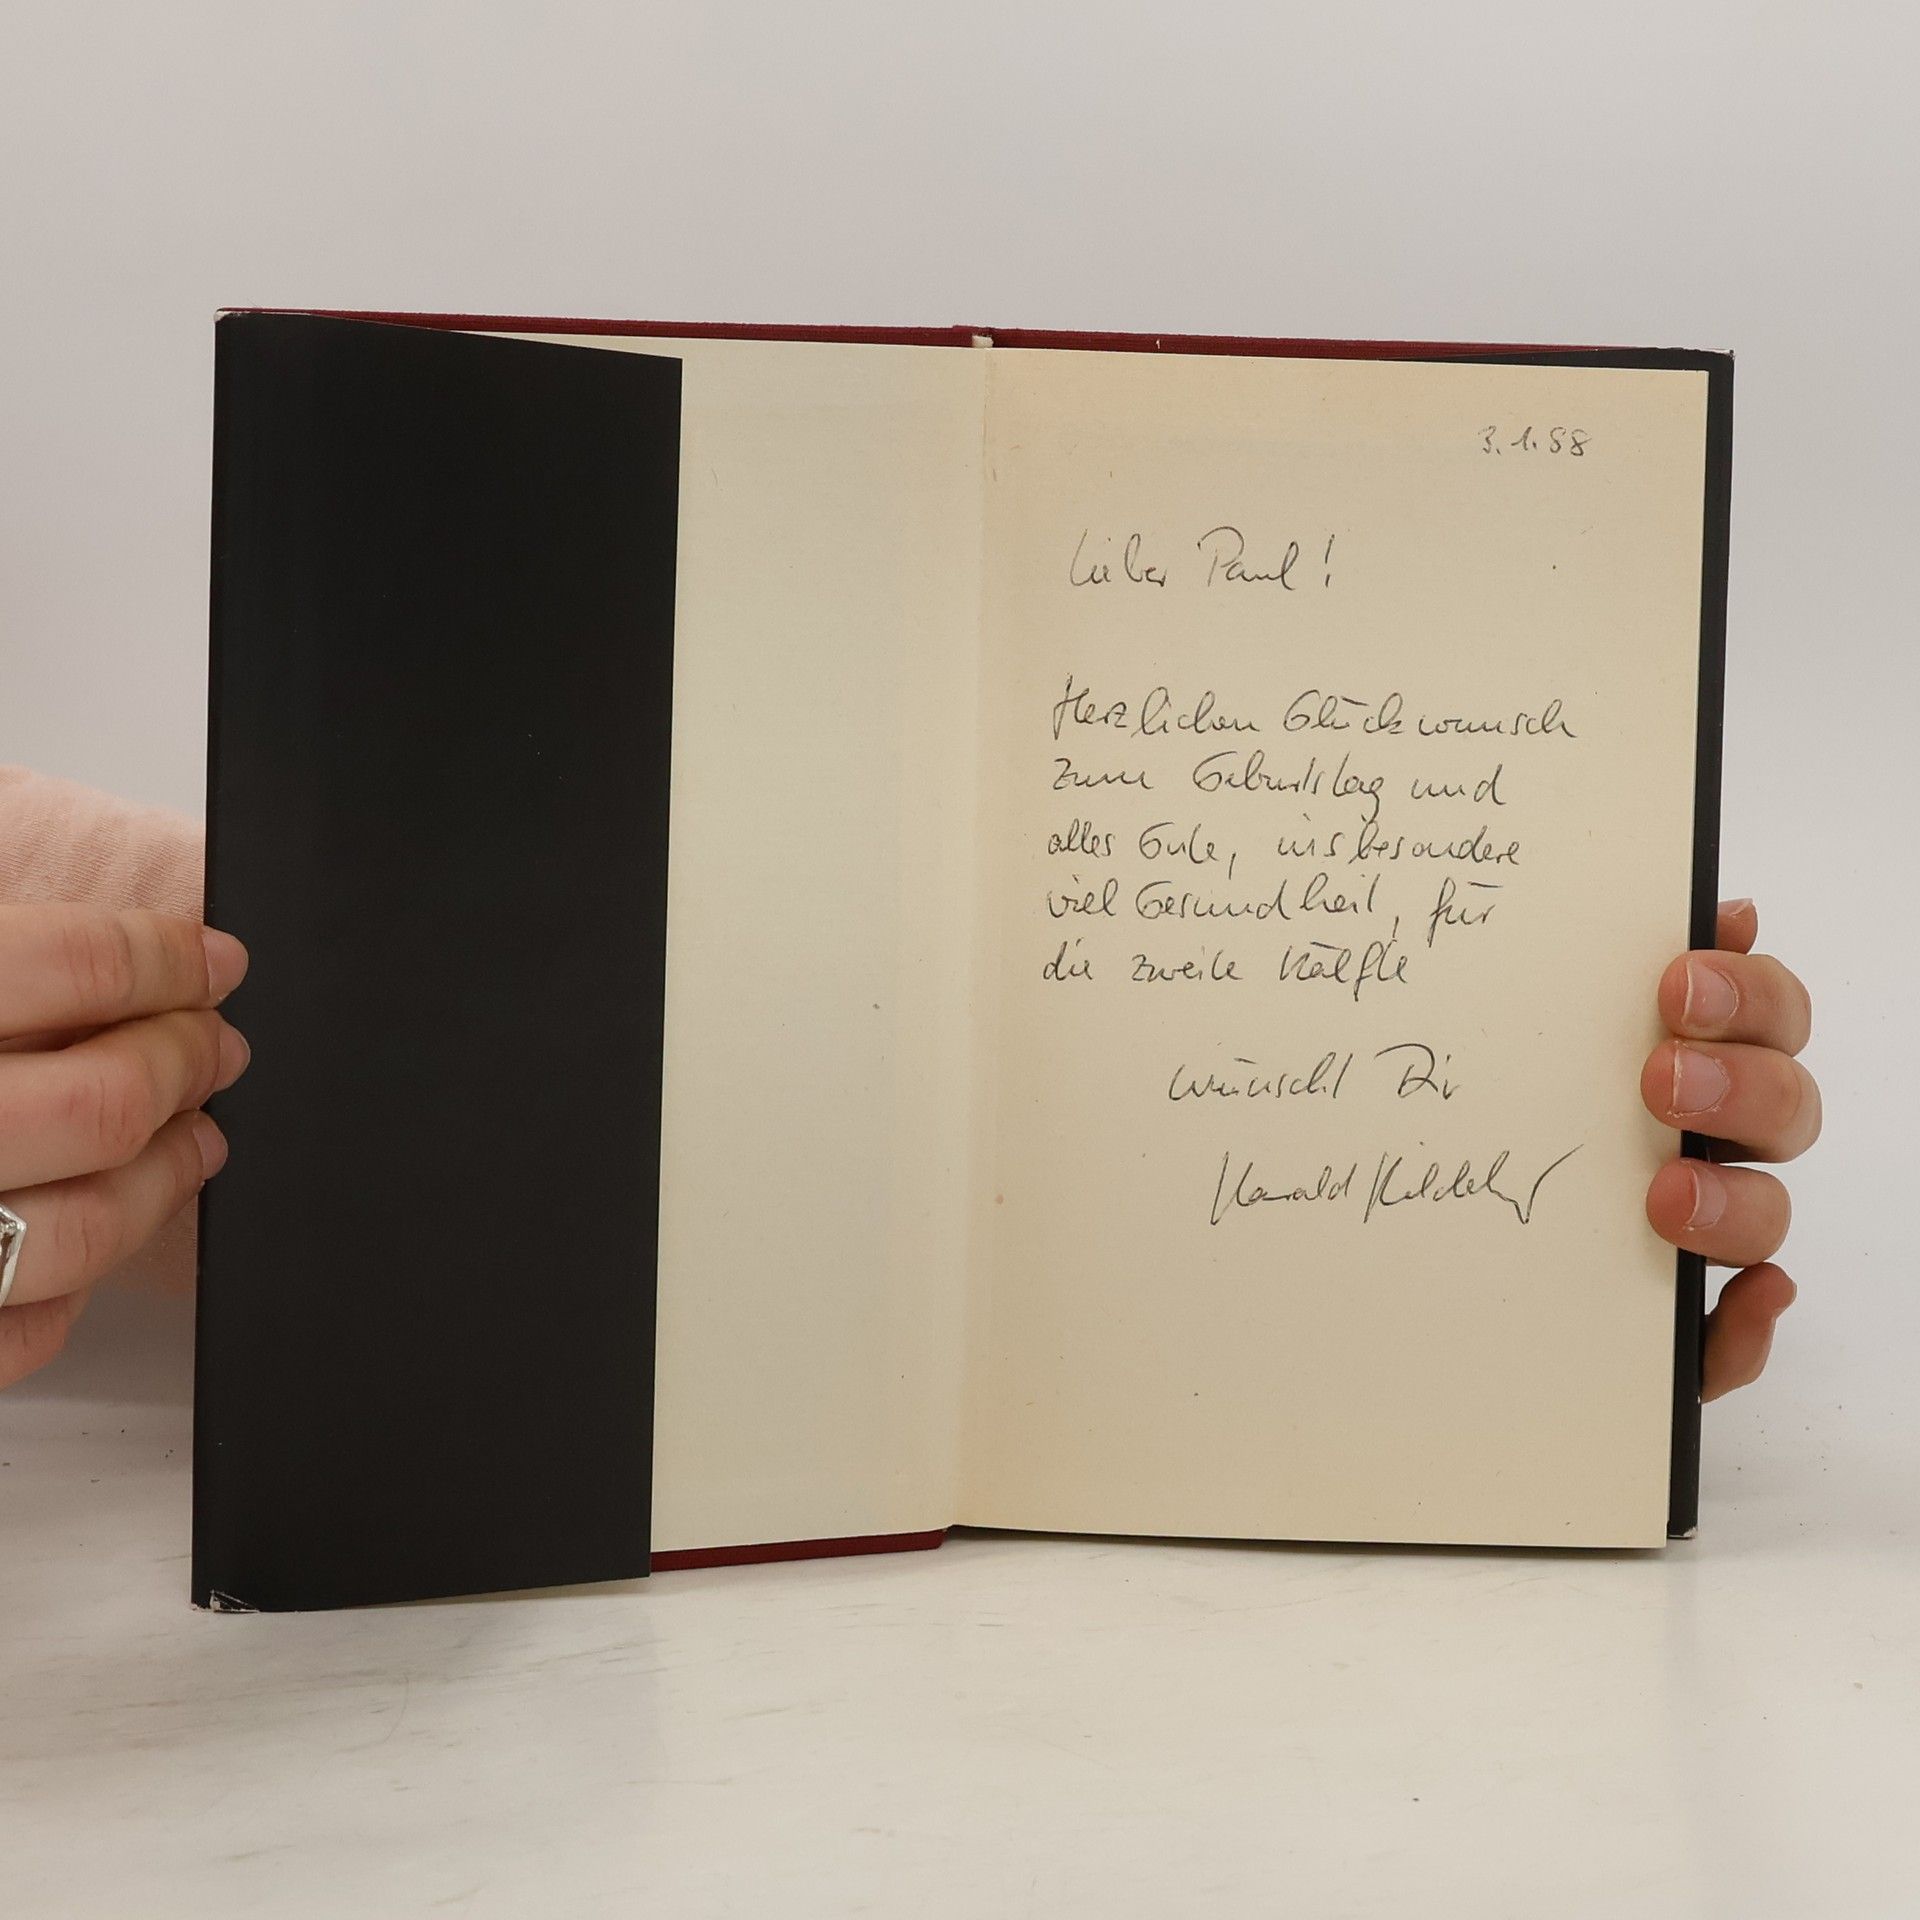 3.1.88
Lieber Paul!
Herzlichen Glückwunsch
zum Geburtstag und
alles Gute, insbesondere
viel Gesundheit, für
die zweite Hälfte
wünscht Dir
Harald